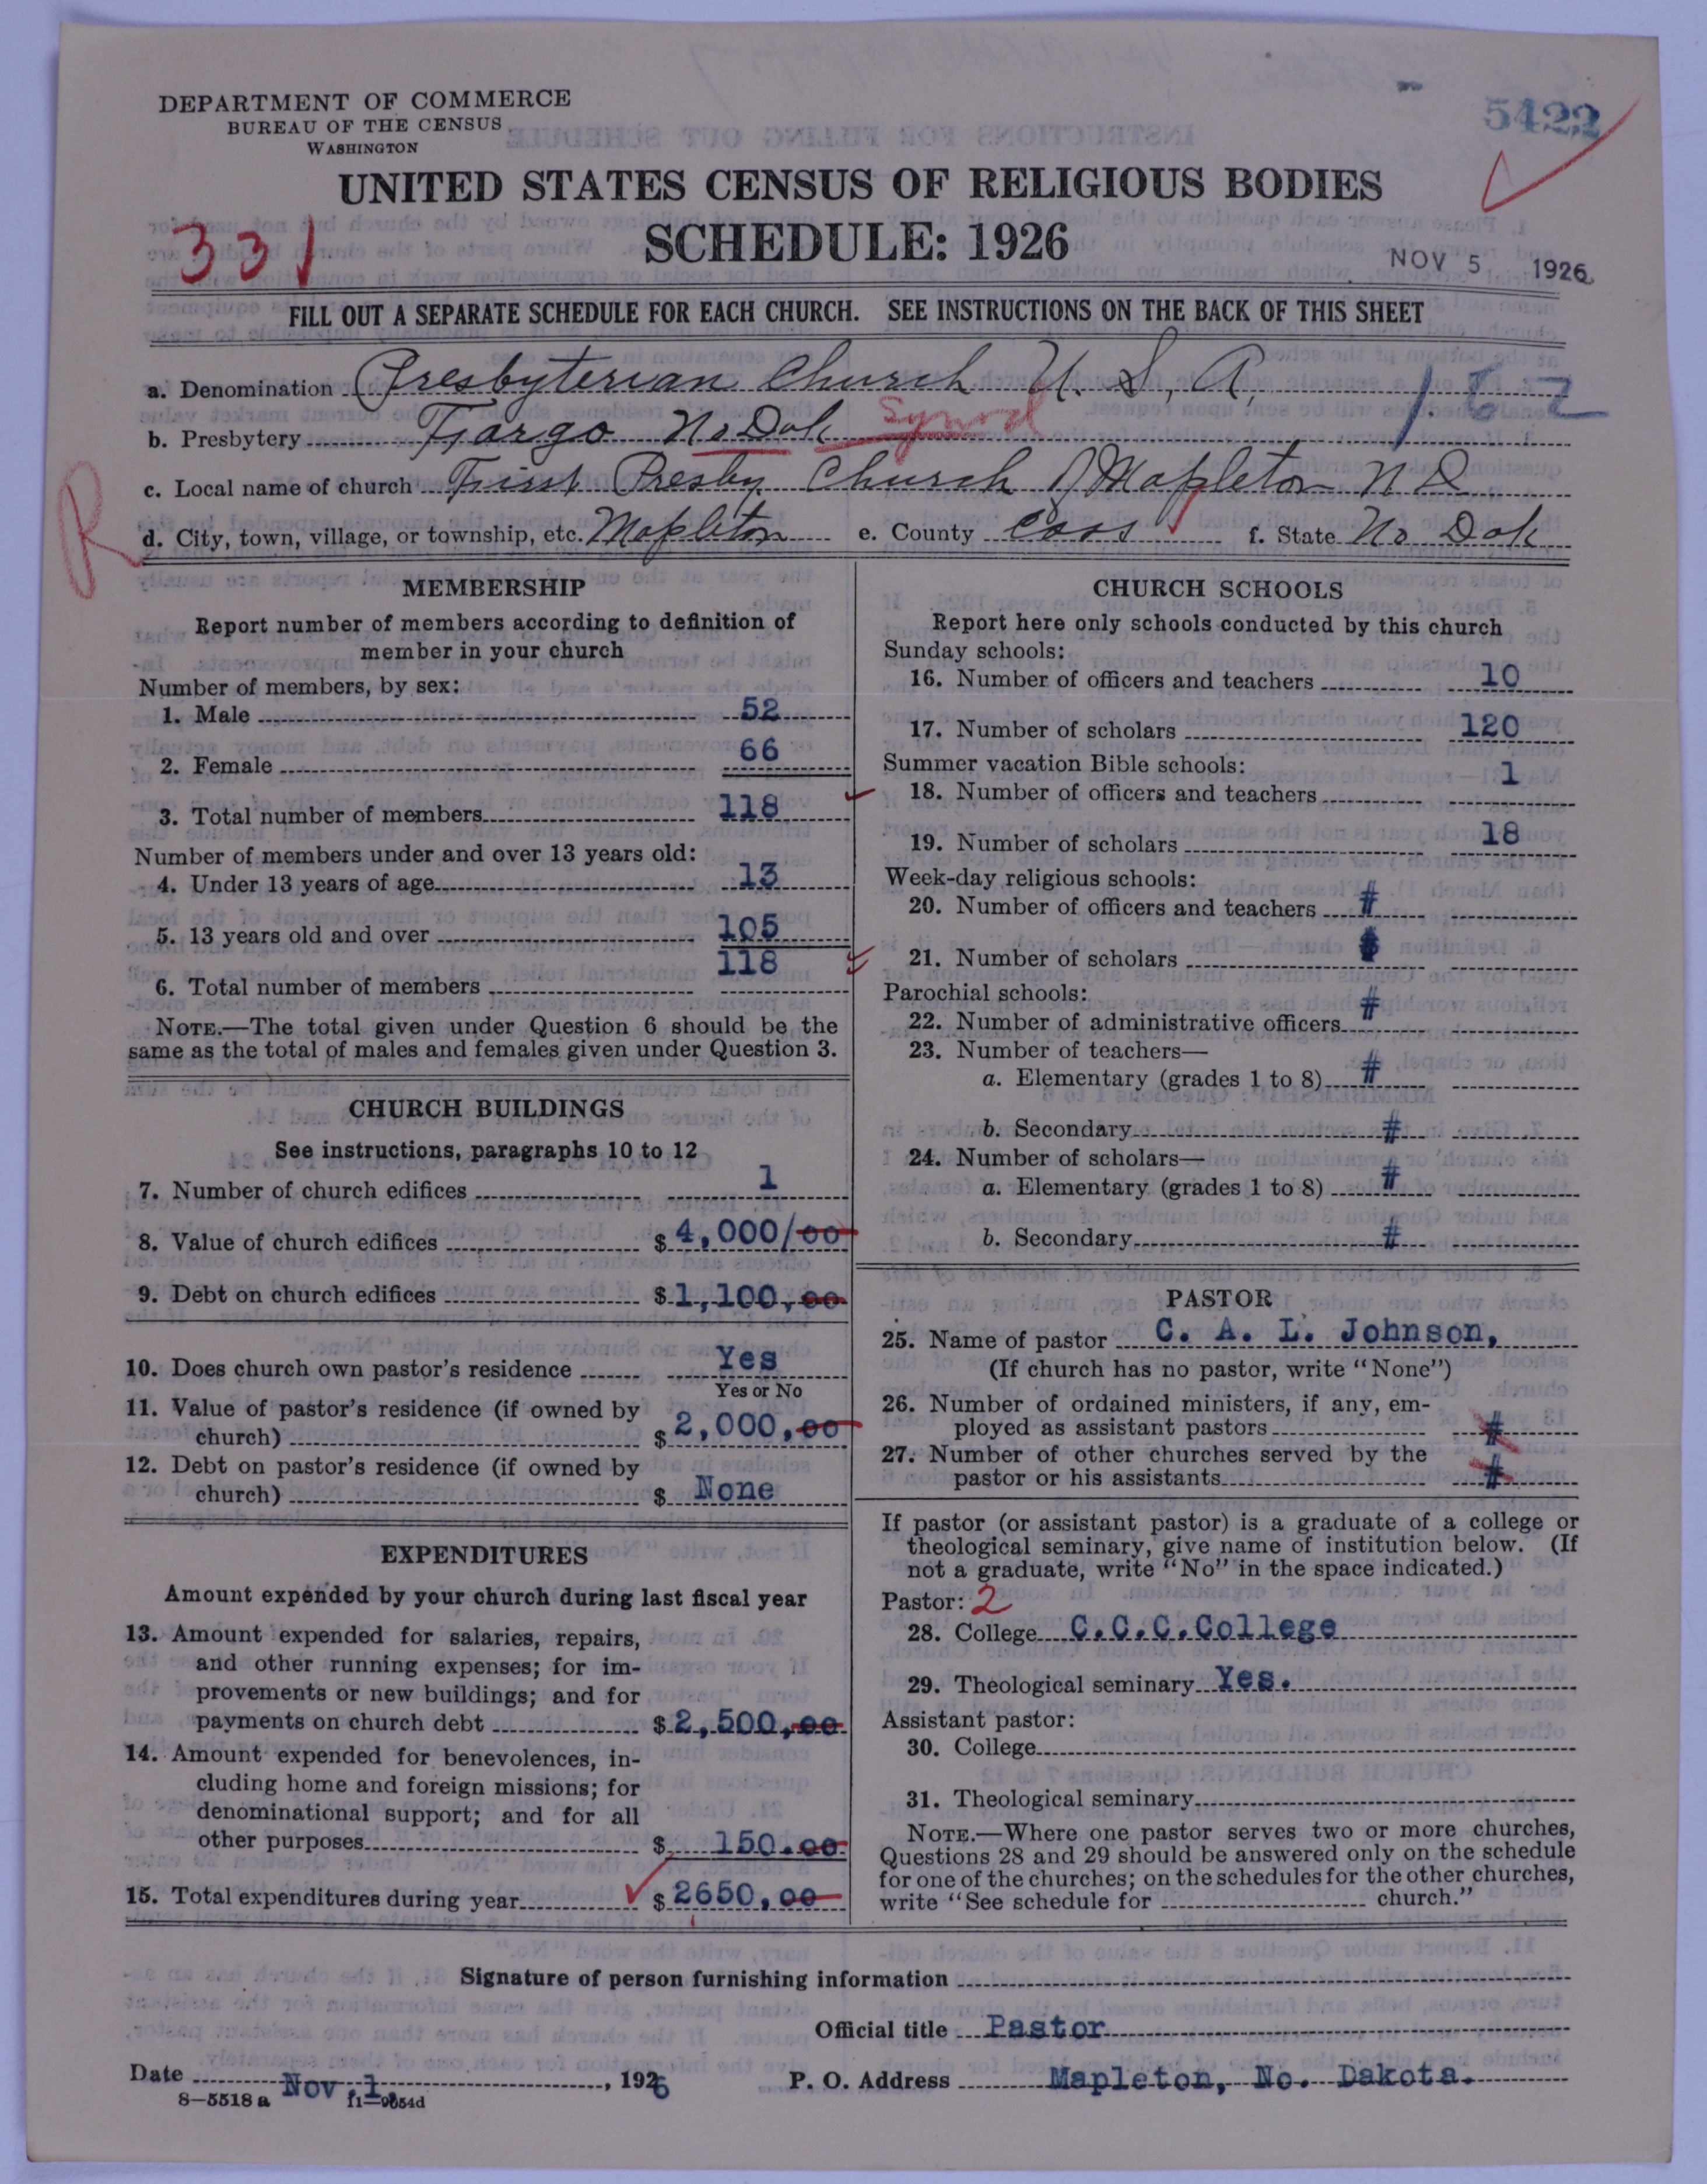 DEPARTMENT OF COMMERCE
BUREAU OF THE CENSUS
WASHINGTON
5422
UNITED STATES CENSUS OF RELIGIOUS BODIES
SCHEDULE: 1926
331
NOV 5 1926
FILL OUT A SEPARATE SCHEDULE FOR EACH CHURCH. SEE INSTRUCTIONS ON THE BACK OF THIS SHEET
a. Denomination Presbyterian Church U. S. A.
162
b. Presbytery Fargo No Dak Synod
c. Local name of church First Presby Church of Mapleton N D
R
d. City, town, village, or township, etc. Mapleton e. County Cass f. State No Dak
MEMBERSHIP
Report number of members according to definition of
member in your church
Number of members, by sex:
1. Male 52
2. Female 66
3. Total number of members 118
Number of members under and over 13 years old:
4. Under 13 years of age 13
5. 13 years old and over 105
6. Total number of members 118
NOTE.—The total given under Question 6 should be the
same as the total of males and females given under Question 3.
CHURCH BUILDINGS
See instructions, paragraphs 10 to 12
7. Number of church edifices 1
8. Value of church edifices $ 4,000/00
9. Debt on church edifices $ 1,100,00
10. Does church own pastor's residence Yes
Yes or No
11. Value of pastor's residence (if owned by
church) $ 2,000,00
12. Debt on pastor's residence (if owned by
church) $ None
EXPENDITURES
Amount expended by your church during last fiscal year
13. Amount expended for salaries, repairs,
and other running expenses; for im-
provements or new buildings; and for
payments on church debt $ 2,500,00
14. Amount expended for benevolences, in-
cluding home and foreign missions; for
denominational support; and for all
other purposes $ 150.00
15. Total expenditures during year $ 2650,00
CHURCH SCHOOLS
Report here only schools conducted by this church
Sunday schools:
16. Number of officers and teachers 10
17. Number of scholars 120
Summer vacation Bible schools:
18. Number of officers and teachers 1
19. Number of scholars 18
Week-day religious schools:
20. Number of officers and teachers #
21. Number of scholars
Parochial schools:
22. Number of administrative officers #
23. Number of teachers—
a. Elementary (grades 1 to 8) #
b. Secondary #
24. Number of scholars—
a. Elementary (grades 1 to 8) #
b. Secondary #
PASTOR
25. Name of pastor C. A. L. Johnson,
(If church has no pastor, write "None")
26. Number of ordained ministers, if any, em-
ployed as assistant pastors #
27. Number of other churches served by the
pastor or his assistants #
If pastor (or assistant pastor) is a graduate of a college or
theological seminary, give name of institution below. (If
not a graduate, write "No" in the space indicated.)
Pastor: 2
28. College C.C.C.College
29. Theological seminary Yes.
Assistant pastor:
30. College
31. Theological seminary
NOTE.—Where one pastor serves two or more churches,
Questions 28 and 29 should be answered only on the schedule
for one of the churches; on the schedules for the other churches,
write "See schedule for church."
Signature of person furnishing information
Official title Pastor
Date Nov,1, 1926 P. O. Address Mapleton, No. Dakota.
8—5518 a 11—9654d